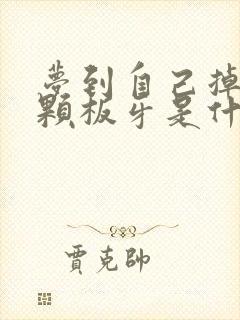 夢到自己掉
顆板牙是什
賈克帥